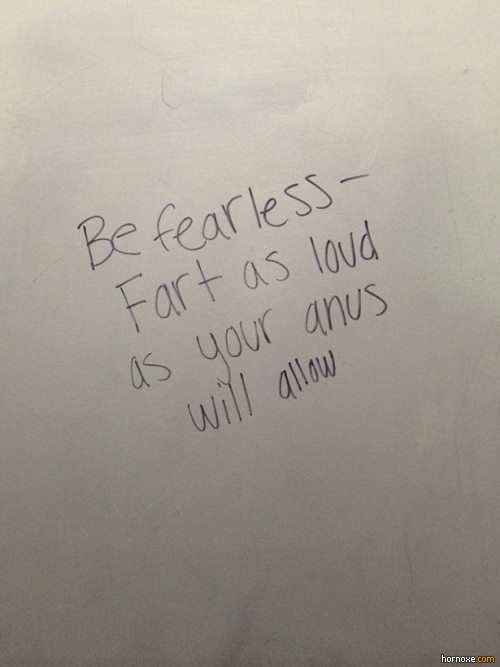 Be fearless-
Fart as loud
as your anus
will allow
hornoxe.com